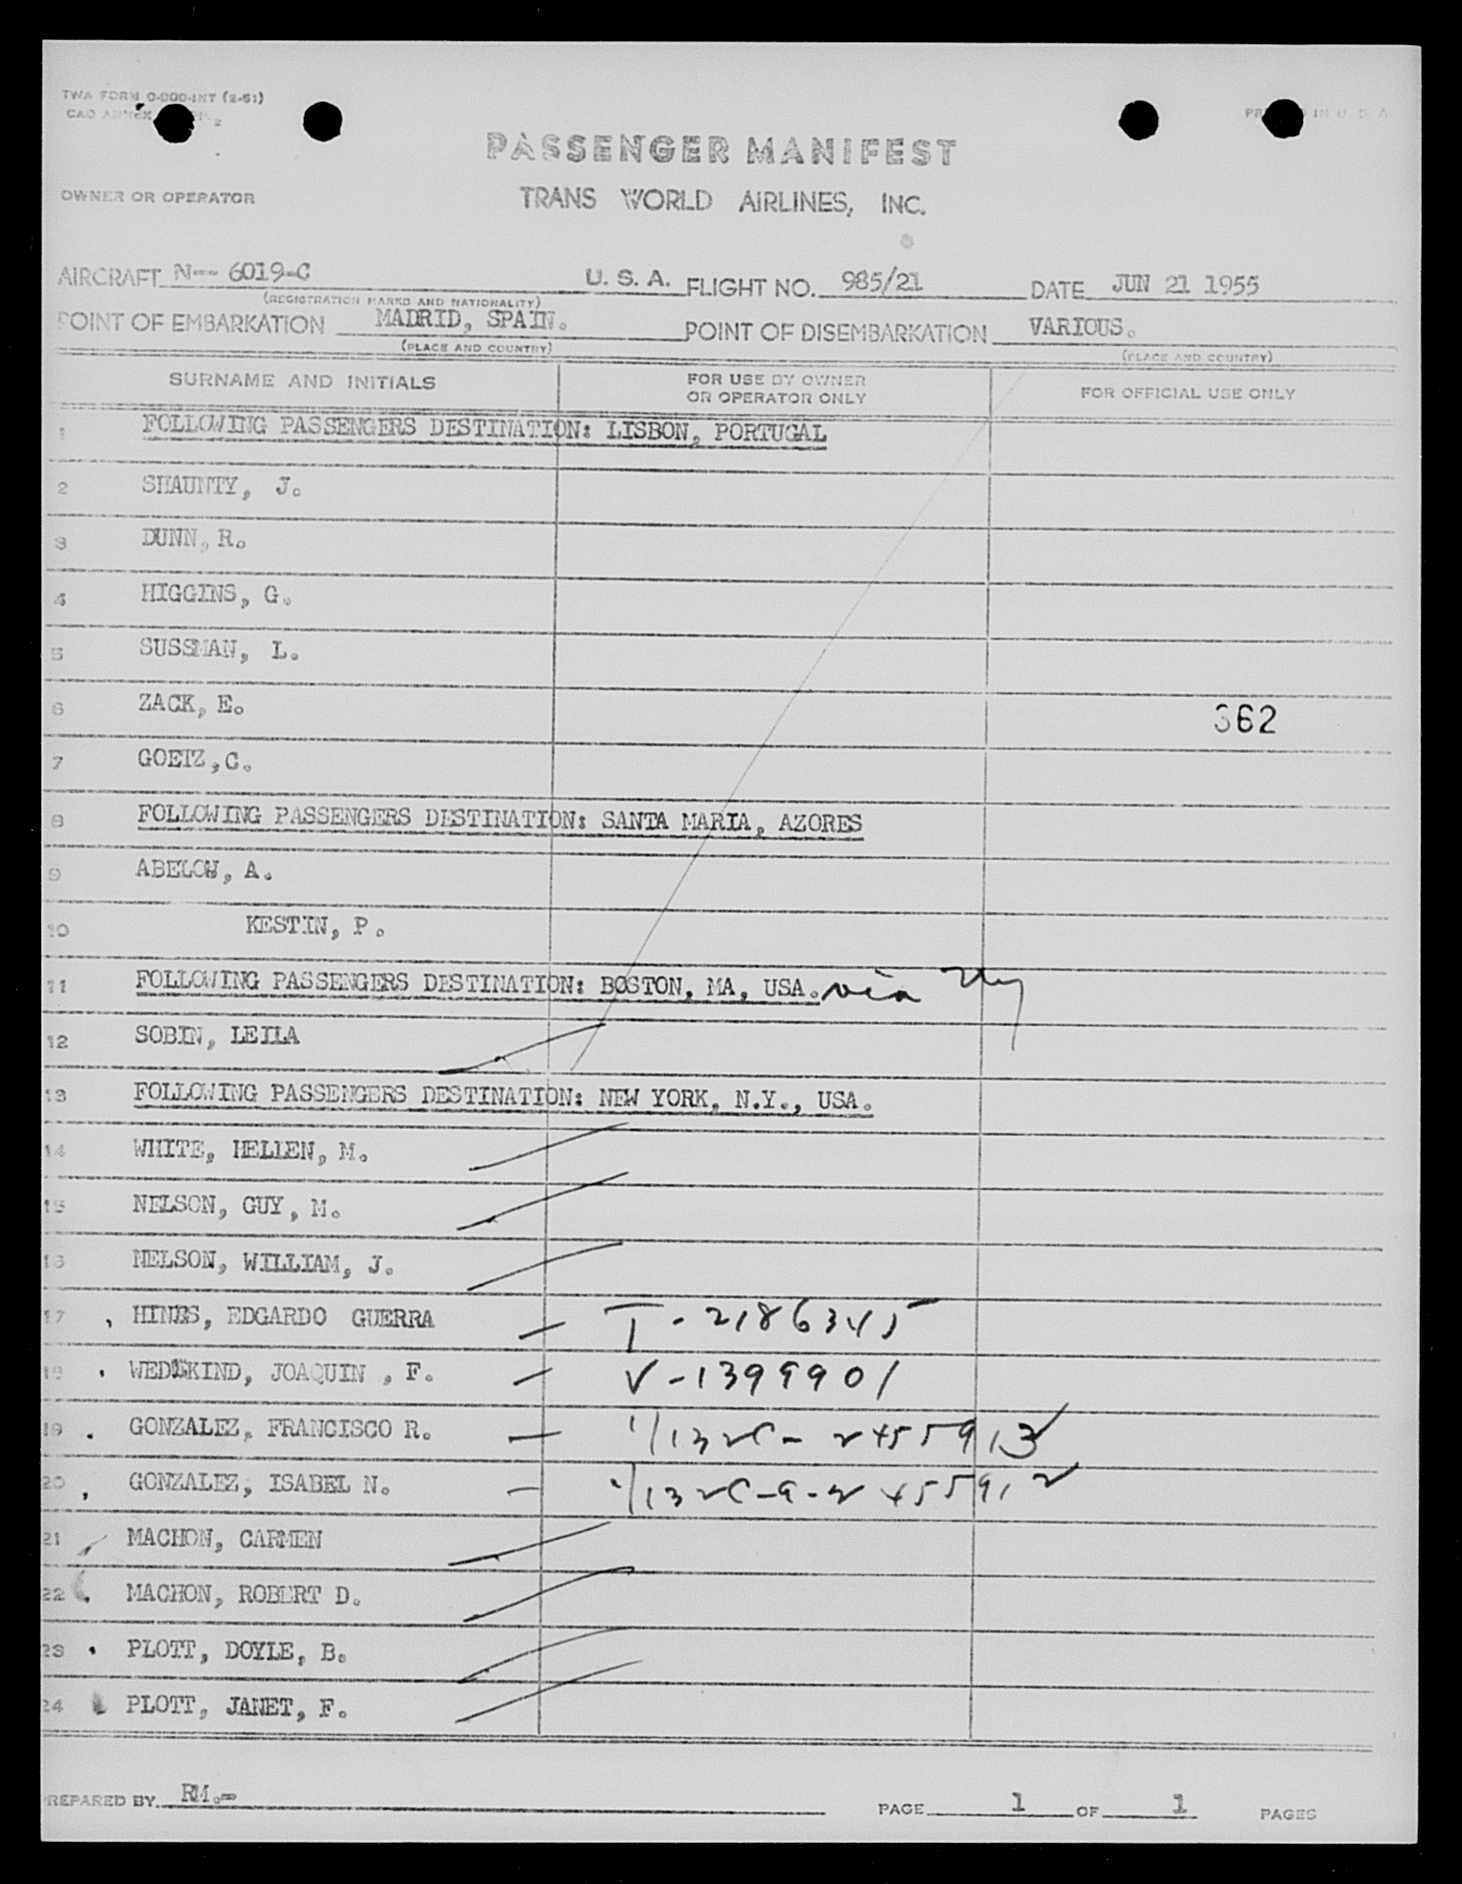 TWA FORM O-000-INT (2-51)
CAO ANNEX 2
PRINTED IN U. S. A.
PASSENGER MANIFEST
OWNER OR OPERATOR
TRANS WORLD AIRLINES, INC.
AIRCRAFT N-- 6019-C U. S. A. FLIGHT NO. 985/21 DATE JUN 21 1955
(REGISTRATION MARKS AND NATIONALITY)
POINT OF EMBARKATION MADRID, SPAIN. POINT OF DISEMBARKATION VARIOUS.
(PLACE AND COUNTRY) (PLACE AND COUNTRY)
SURNAME AND INITIALS FOR USE BY OWNER OR OPERATOR ONLY FOR OFFICIAL USE ONLY
1 FOLLOWING PASSENGERS DESTINATION: LISBON, PORTUGAL
2 SHAUNTY, J.
3 DUNN, R.
4 HIGGINS, G.
5 SUSSMAN, L.
6 ZACK, E. 362
7 GOETZ,C.
8 FOLLOWING PASSENGERS DESTINATION: SANTA MARIA, AZORES
9 ABELOW, A.
10 KESTIN, P.
11 FOLLOWING PASSENGERS DESTINATION: BOSTON, MA, USA. via Ny
12 SOBIN, LEILA
13 FOLLOWING PASSENGERS DESTINATION: NEW YORK, N.Y., USA.
14 WHITE, HELLEN, M.
15 NELSON, GUY, M.
16 NELSON, WILLIAM, J.
17 HINES, EDGARDO GUERRA — T-2186345
18 WEDEKIND, JOAQUIN , F. — V-1399901
19 GONZALEZ, FRANCISCO R. —
20 GONZALEZ, ISABEL N. —
21 MACHON, CARMEN
22 MACHON, ROBERT D.
23 PLOTT, DOYLE, B.
24 PLOTT, JANET, F.
PREPARED BY RM.- PAGE 1 OF 1 PAGES